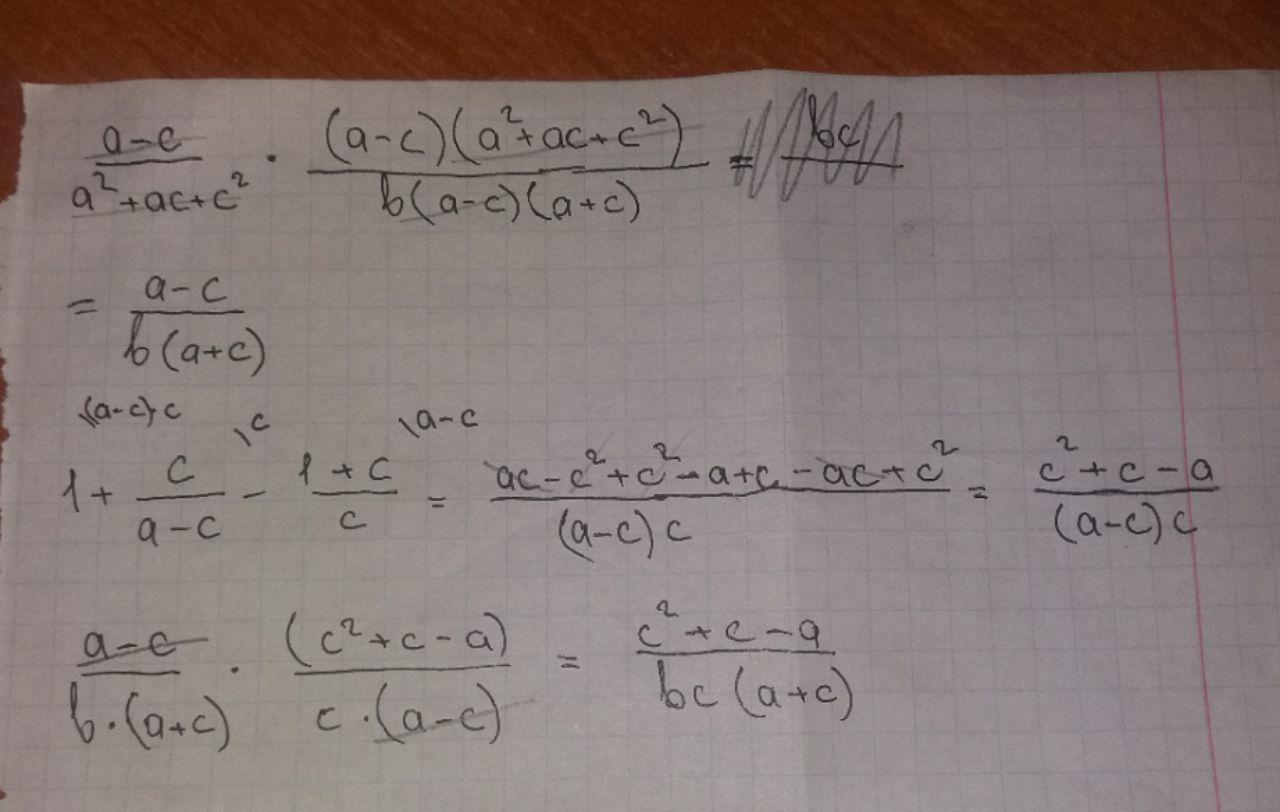 (a-c)/(a²+ac+c²) · ((a-c)(a²+ac+c²))/(b(a-c)(a+c)) =
= (a-c)/(b(a+c))
\(a-c)·c \c \a-c
1 + c/(a-c) - (1+c)/c = (ac-c²+c²-a+c-ac+c²)/((a-c)c) = (c²+c-a)/((a-c)c)
(a-c)/(b·(a+c)) · (c²+c-a)/(c·(a-c)) = (c²+c-a)/(bc(a+c))